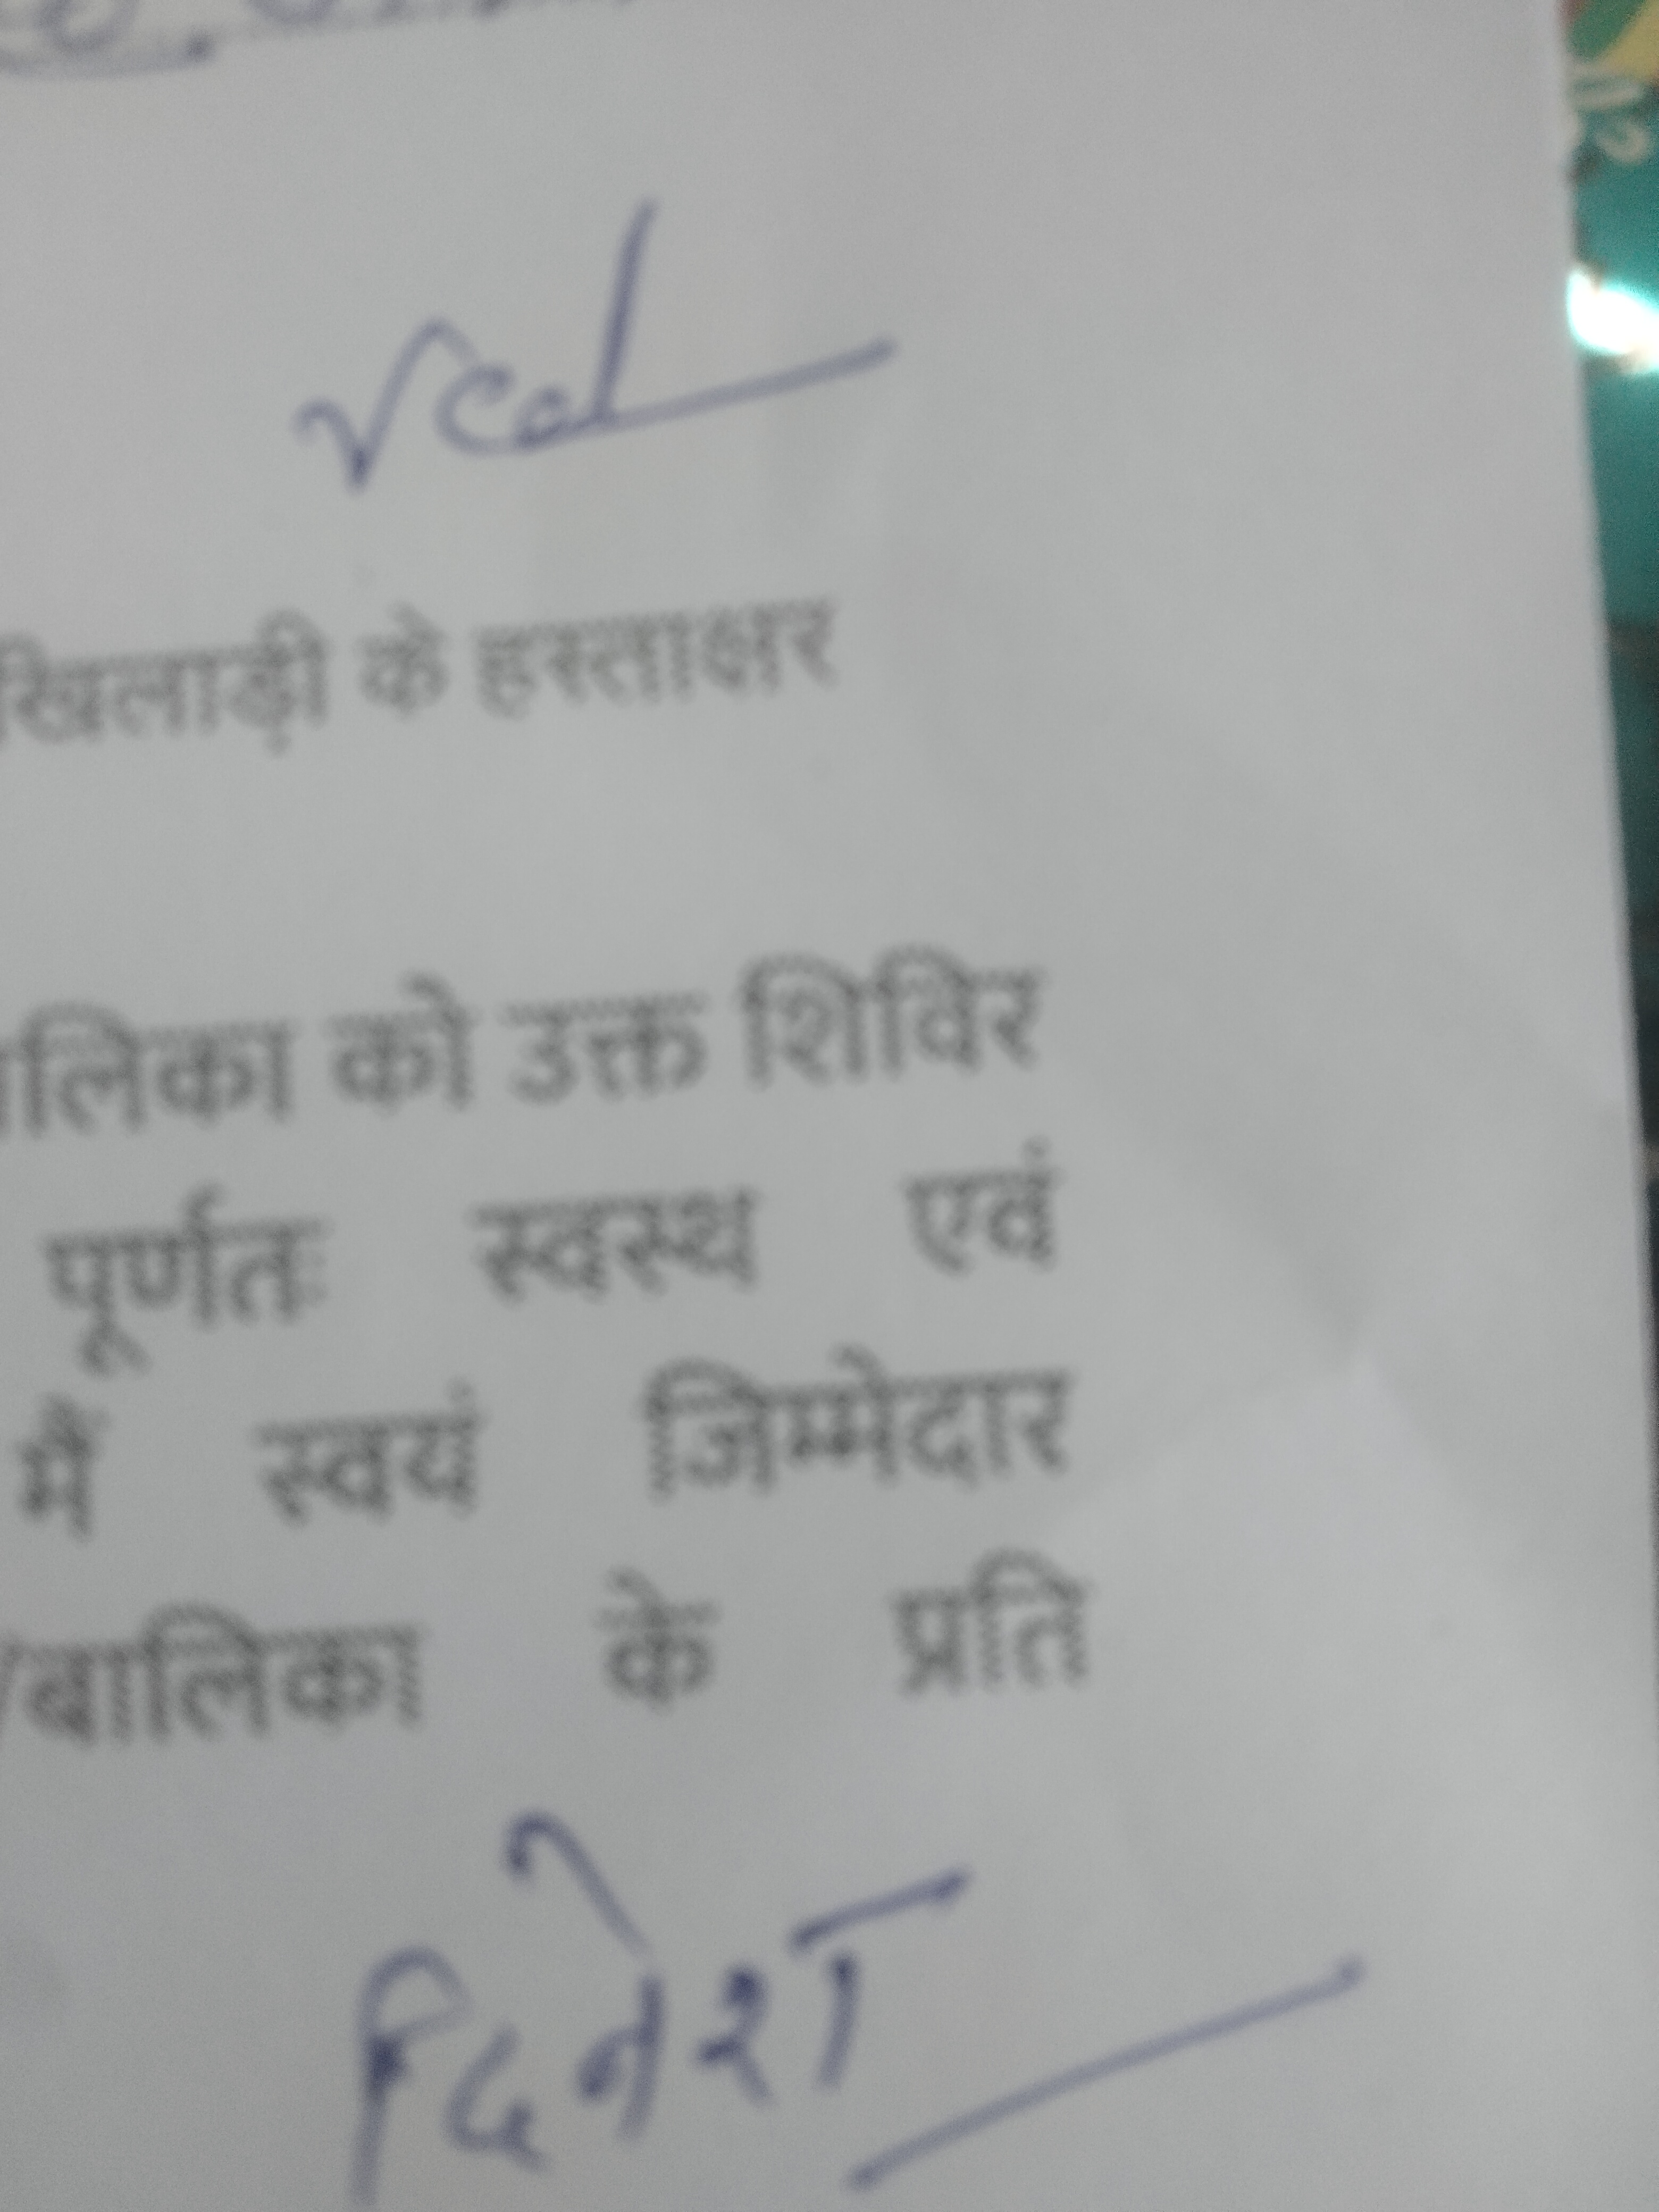 खिलाड़ी के हस्ताक्षर
ालिका को उक्त शिविर
पूर्णतः स्वस्थ एवं
मैं स्वयं जिम्मेदार
/बालिका के प्रति
दिनेश